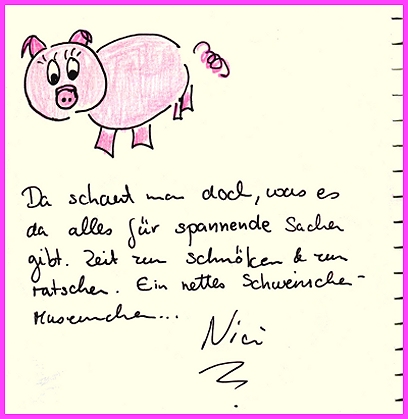 Da schaut man doch, was es
da alles für spannende Sachen
gibt. Zeit zum schmöken & zum
ratschen. Ein nettes Schweinchen-
Museumchen...
Nici